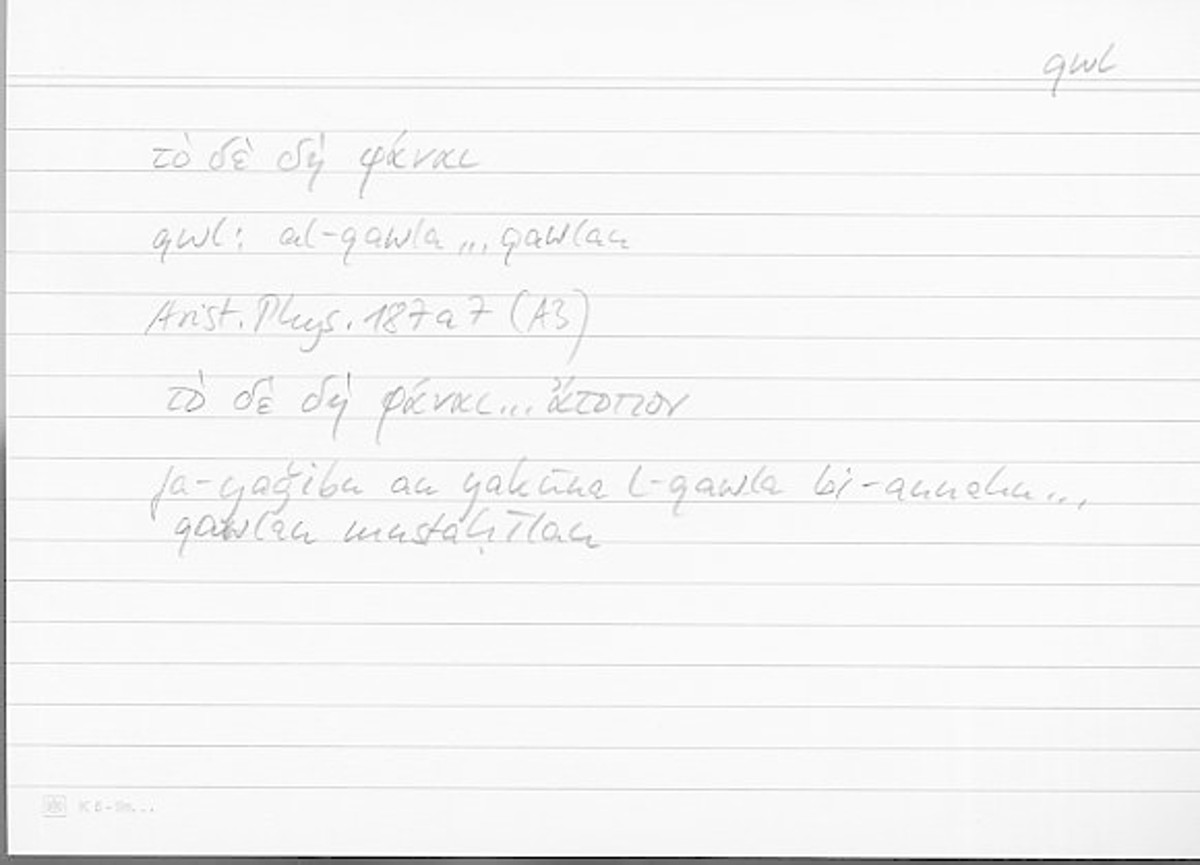 qwl
τὸ δὲ δὴ φάναι
qwl: al-qawla ... qawlan
Arist. Phys. 187a7 (A3)
τὸ δὲ δὴ φάναι... ἄτοπον
fa-yaǧibu an yakūna l-qawla bi-annahu...
qawlan mustaḥīlan